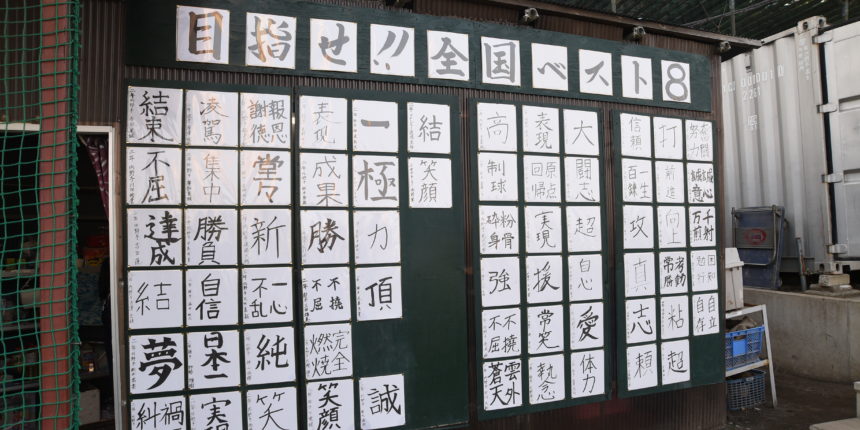 目指せ!!全国ベスト8
結束 凌駕 報恩謝徳 表現 一 結
不屈 集中 堂々 成果 極 笑顔
達成 勝負 新 勝 力
結 自信 一心不乱 不撓不屈 頂
夢 日本一 純 完全燃焼
禍糾 実 笑 笑顔 誠
高 表現 大
制球 原点回帰 闘志
粉骨砕身 実現 超
強 援 自心
不撓不屈 常笑 愛
雲外蒼天 執念 体力
信頼 打 奮闘努力
一生百錬 前進 誠心誠意
攻 向上 千射万箭
真 考動常勝 困知勉行
志 粘 自立自存
頼 超